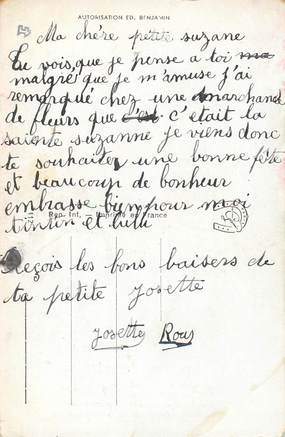 AUTORISATION ED. BENJAMIN
Ma chère petite suzane
Tu vois, que je pense a toi ma
malgré que je m'amuse j'ai
remarqué chez une marchande
de fleurs que c'est c'etait la
sainte suzanne je viens donc
te souhaiter une bonne fête
et beaucoup de bonheur
embrasse bien pour moi
Rep. Int. — Imprimé en France
tintin et lulu
Reçois les bons baisers de
ta petite Josette
Josette Rous